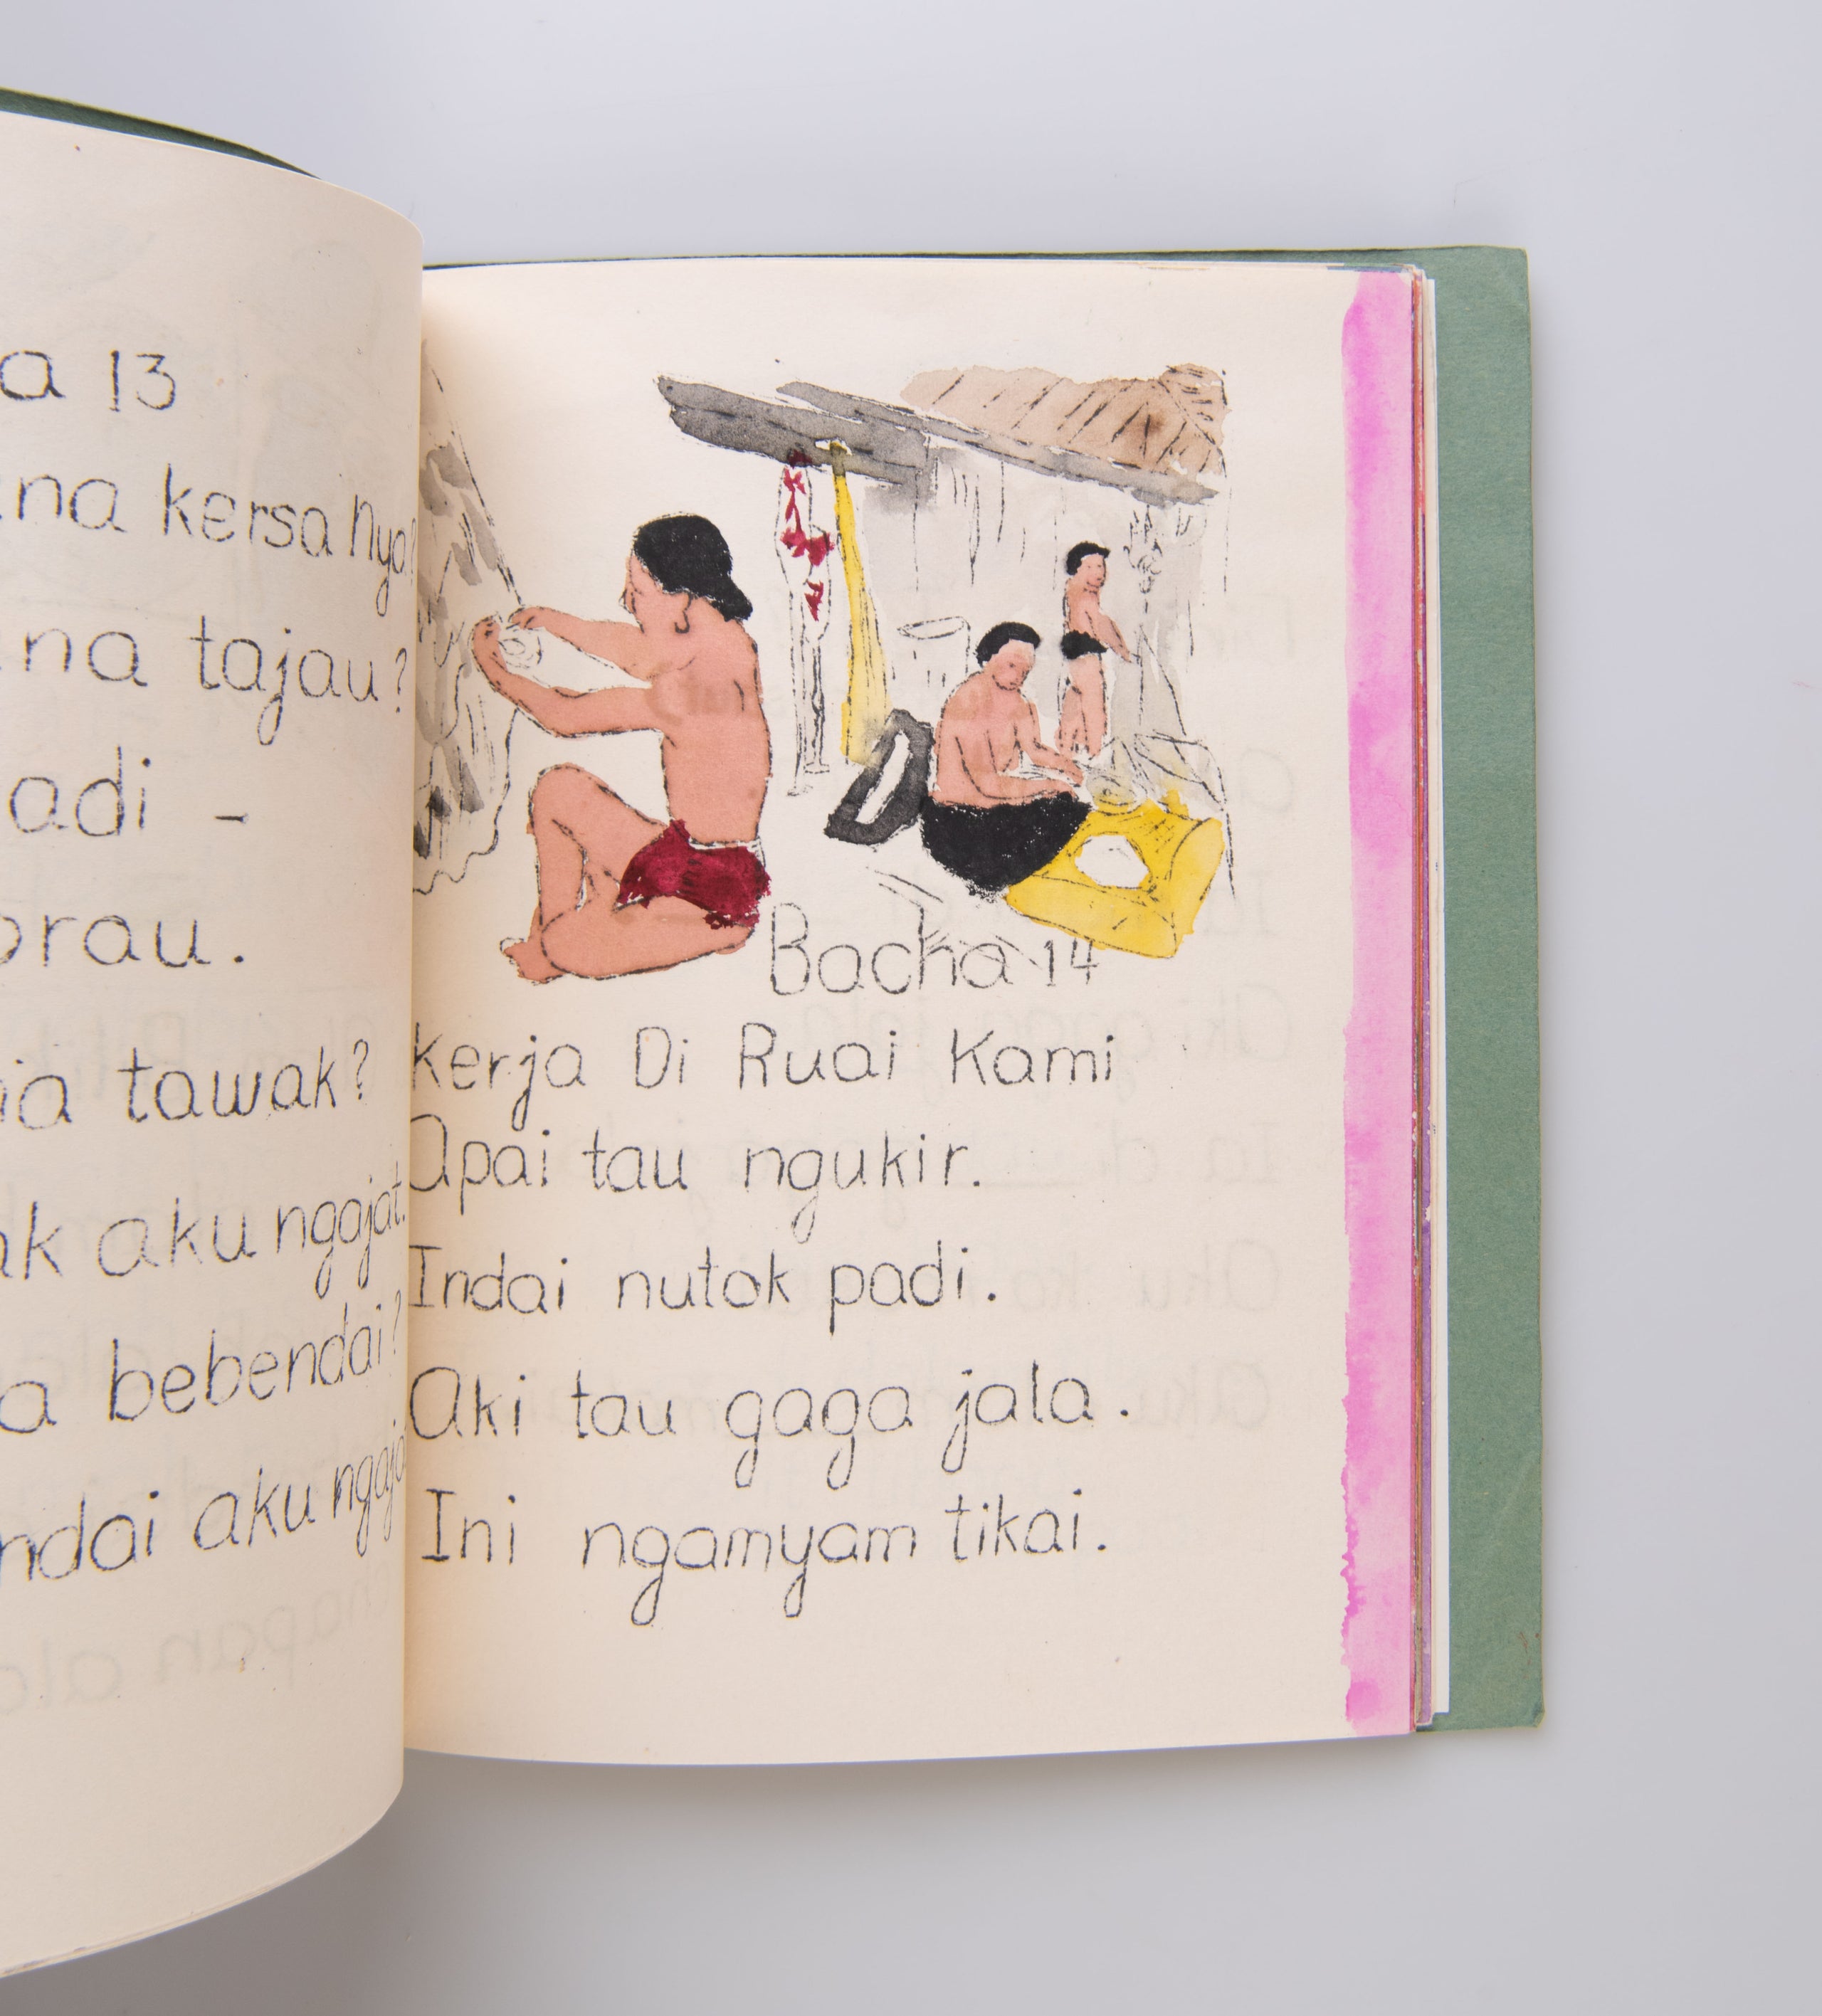 13
kersa nya?
tajau?
tawak?
aku ngajat.
bebendai?
aku
Bacha 14
Kerja Di Ruai Kami
Apai tau ngukir.
Indai nutok padi.
Aki tau gaga jala.
Ini ngamyam tikai.